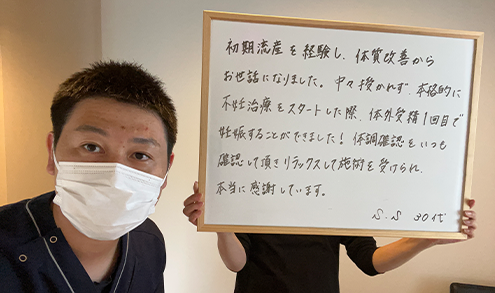 初期流産を経験し、体質改善から
お世話になりました。中々授かれず、本格的に
不妊治療をスタートした際、体外受精1回目で
妊娠することができました！体調確認をいつも
確認して頂きリラックスして施術を受けられ、
本当に感謝しています。
S.S 30代